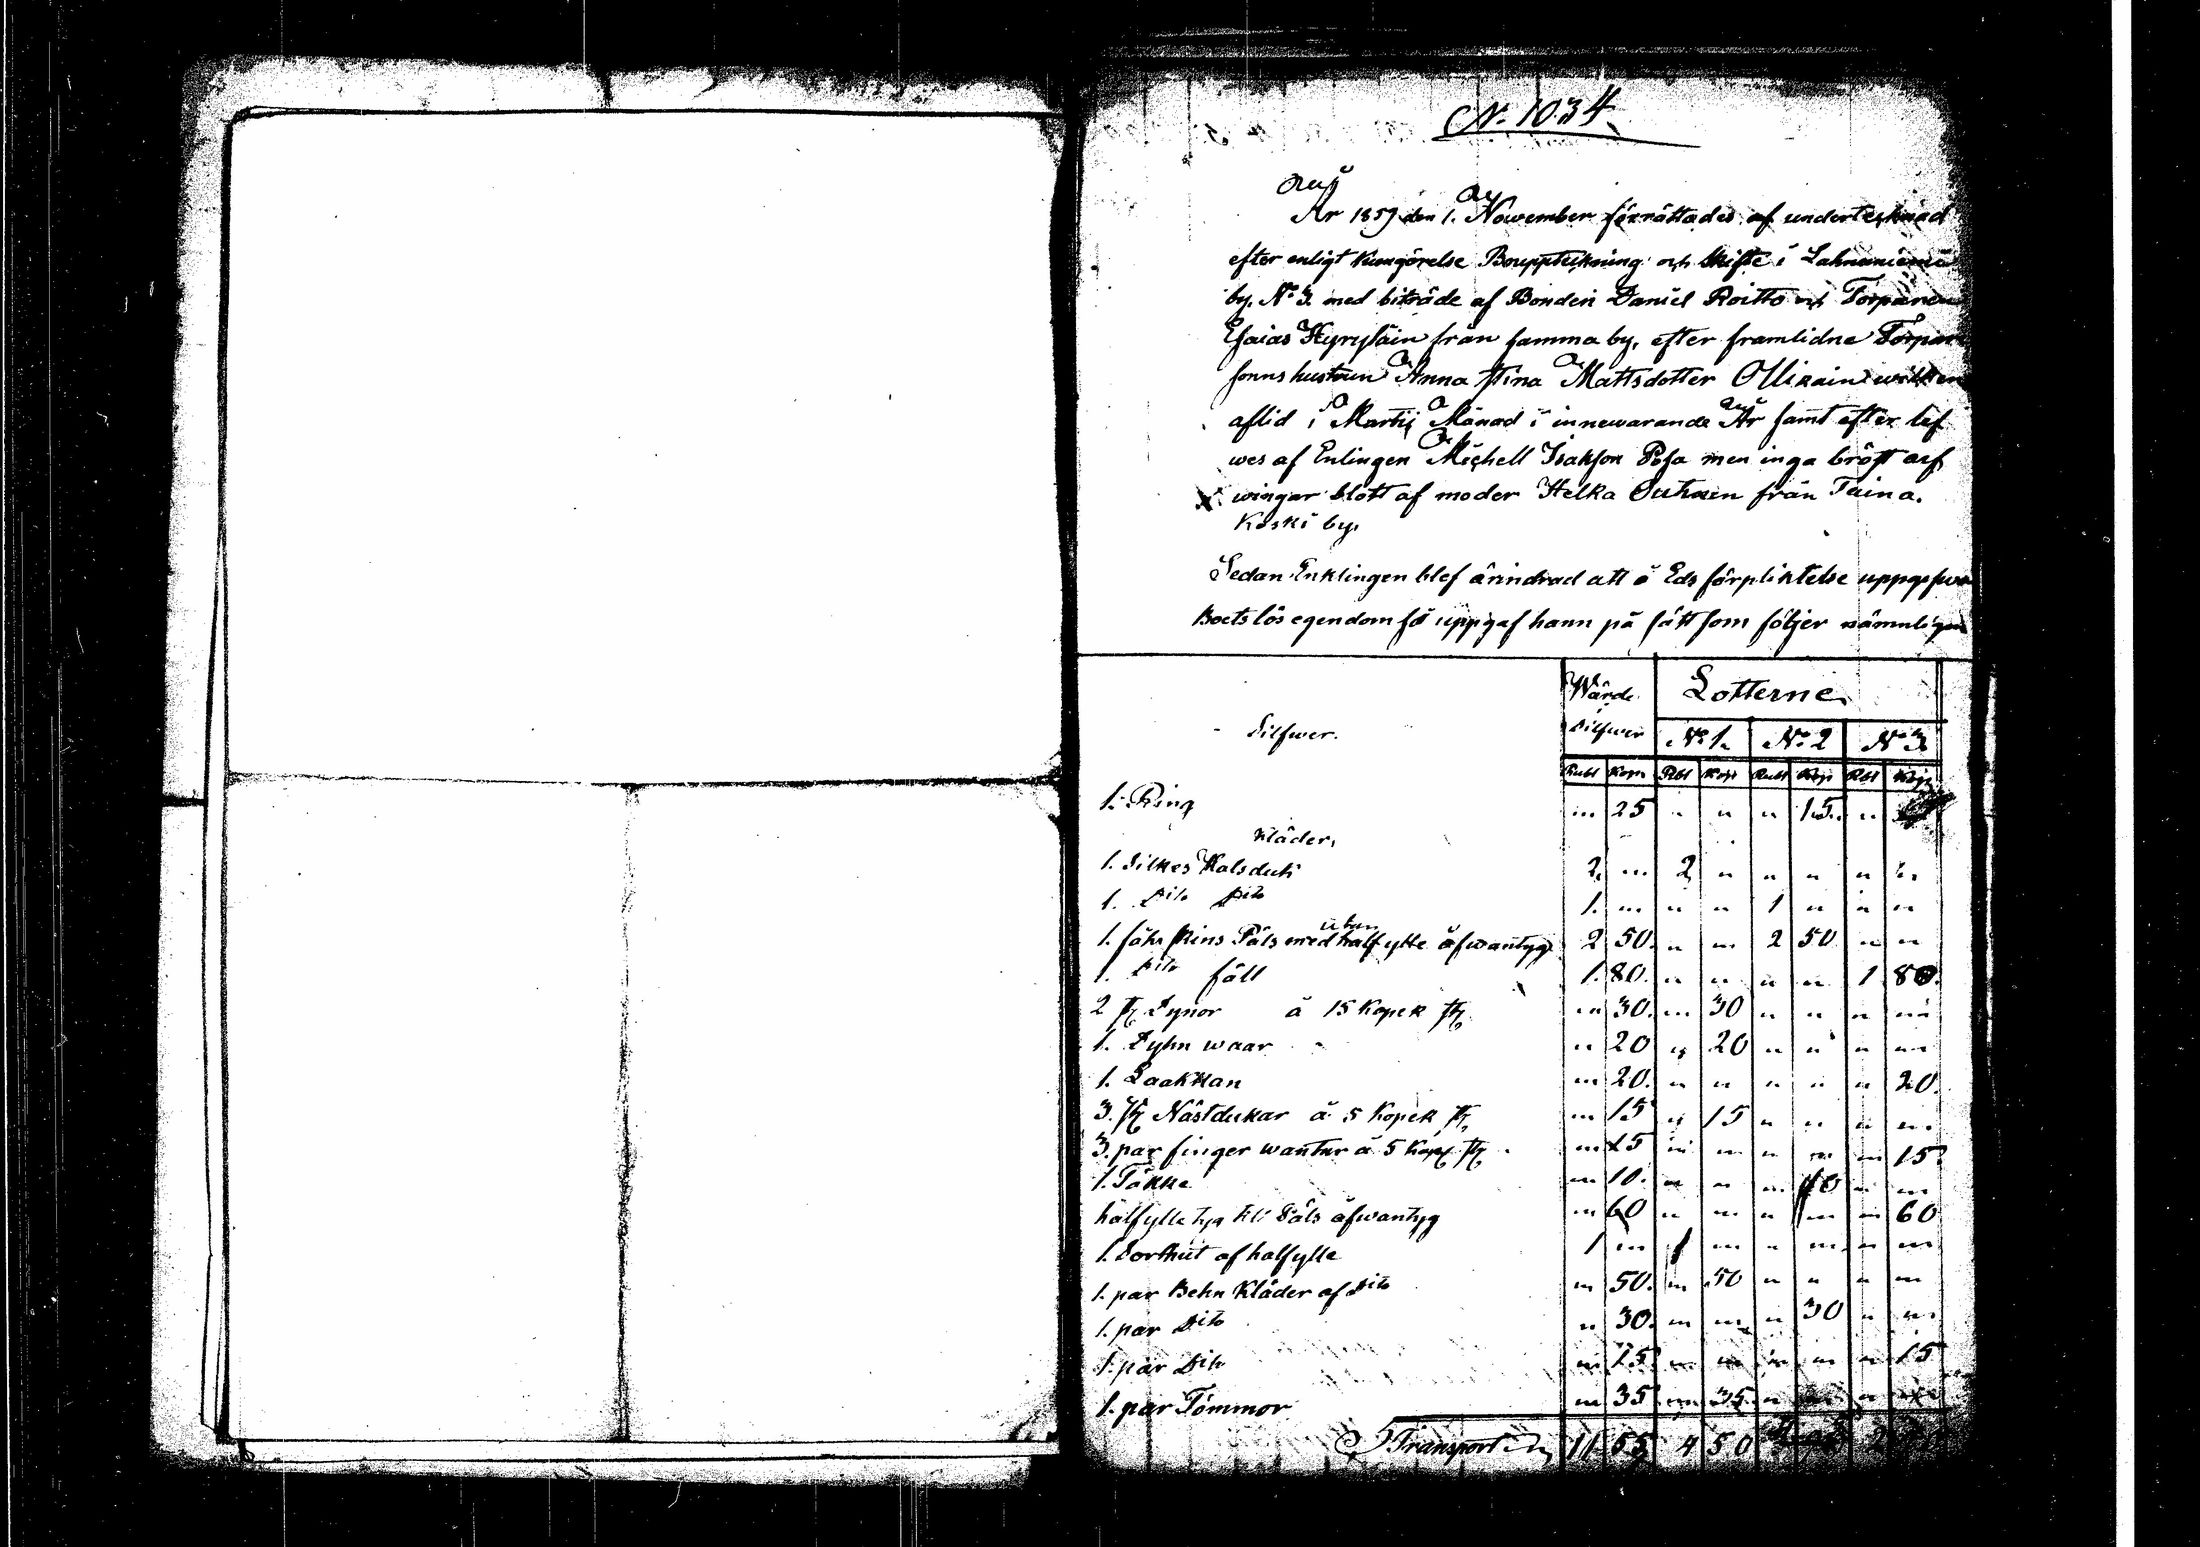 N. 1034
År 1859 den 1. November förrättades af undertecknad
efter enligt kungörelse Bouppteckning och Skifte i Lahnaniemi
by. No 3. med biträde af Bonden Daniel Roitto och Torparen
Esaias Hyryläin från samma by, efter framlidne Torpare
sonns hustrun Anna Stina Mattsdotter Ollikain wilken
aflid i Martij Månad i innewarande År samt efter lef
wes af Enlingen Michell Isakson Posa men inga bröst arf
wingar blott af moder Helka från Taina.
Koski by.
Sedan Enklingen blef ärindrad att å Eds förpliktelse uppgifwa
Boets lös egendom så uppgaf hann på sätt som följer nämnligen
Silfwer. Wärde i Silfwer Lotterne
No 1. No 2 No 3
Rubl Kop Rbl Kop Rubl Kop Rbl Kop
1. Ring " 25 " " " 15. "
Kläder,
1. Silkes Halsduk 2. " 2 " " " " "
1. Dito Dito 1. " " " 1 " " "
1. fåhr skins Päls med utan halfylle åfwantyg 2 50. " " 2 50 " "
1. Dito fäll 1. 80. " " " " 1 80.
2 st Dynor å 15 Kopek st " 30. " 30 " " " "
1. Dyhn waar " 20 " 20 " " " "
1. Laakkan " 20. " " " " " 20.
3. st Nästdukar å 5 Kopek st " 15 " 15 " " " "
3. par finger wantar å 5 Kop st " 15 " " " " " 15.
1. Täkke " 10. " " " 10 " "
halfylle tyg till Päls åfwantyg " 60 " " " " " 60
1. Sorthut af halfylle 1 " 1 " " " " "
1. par Behn Kläder af Dito " 50. " 50 " " " "
1. par Dito " 30. " " " 30 " "
1. par Dito " 15 " " " " " 15
1. par Tömmor " 35 " 35. " " " "
Transport 11 55 4 50